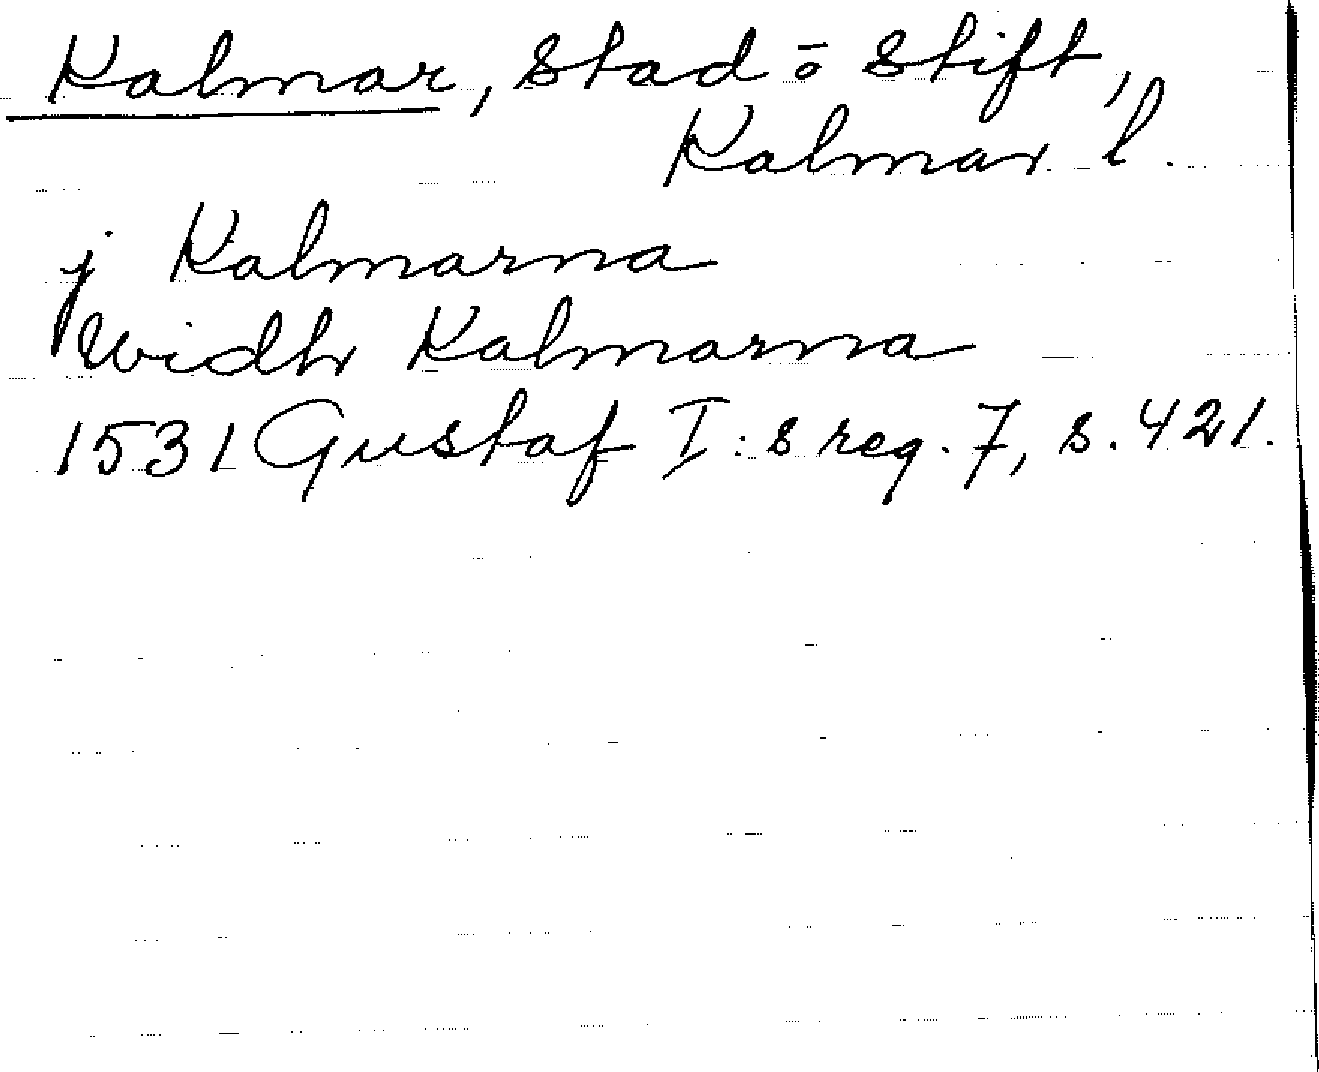 Kalmar, stad o stift,
Kalmar l.
j Kalmarna
widh Kalmarna
1531 Gustaf I:s reg. 7, s. 421.